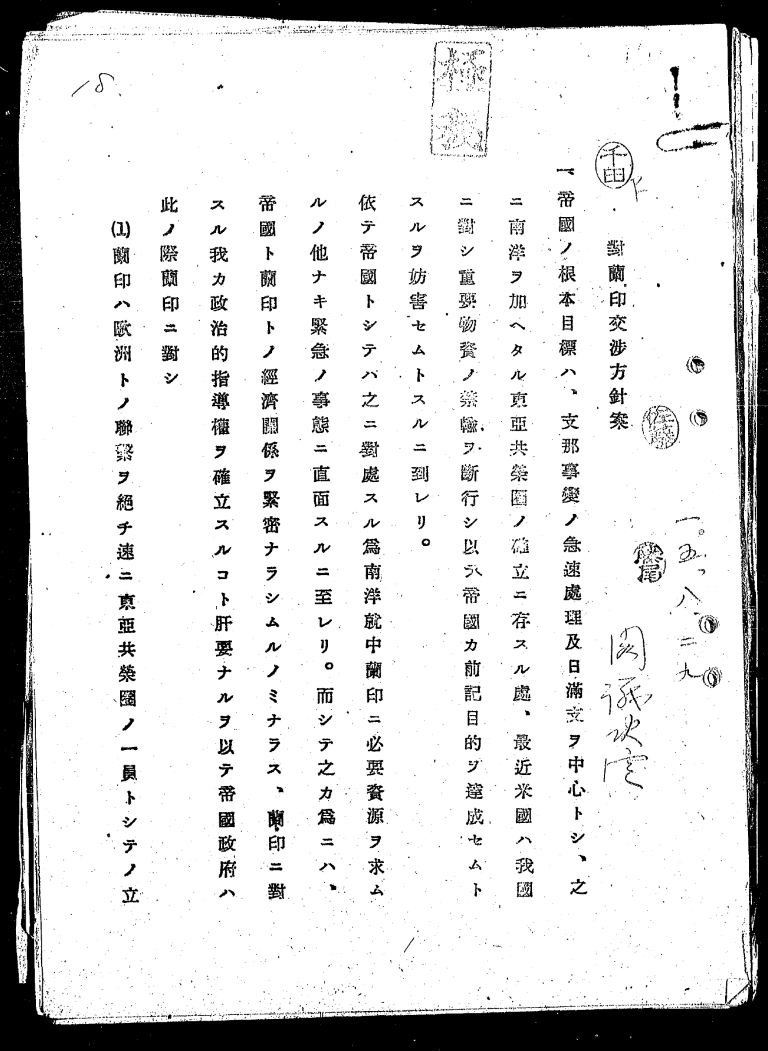 18.
極秘
千田
對蘭印交渉方針案
佐藤
藤尾
一五、八、二九
閣議決定
一、帝國ノ根本目標ハ、支那事變ノ急速處理及日滿支ヲ中心トシ、之
ニ南洋ヲ加ヘタル東亞共榮圈ノ確立ニ存スル處、最近米國ハ我國
ニ對シ重要物資ノ禁輸ヲ斷行シ以テ帝國カ前記目的ヲ達成セムト
スルヲ妨害セムトスルニ到レリ。
依テ帝國トシテハ之ニ對處スル爲南洋就中蘭印ニ必要資源ヲ求ム
ルノ他ナキ緊急ノ事態ニ直面スルニ至レリ。而シテ之カ爲ニハ、
帝國ト蘭印トノ經濟關係ヲ緊密ナラシムルノミナラス、蘭印ニ對
スル我カ政治的指導權ヲ確立スルコト肝要ナルヲ以テ帝國政府ハ
此ノ際蘭印ニ對シ
(1)蘭印ハ歐洲トノ聯繫ヲ絕チ速ニ東亞共榮圈ノ一員トシテノ立